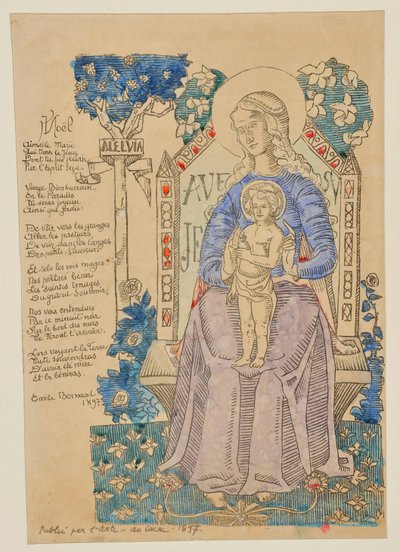 Noël
Aimable Marie
Qui tiens le Jésus
Dont tu fus fleurie
Par l'esprit
Vierge Bienheureuse,
En le Paradis
tu seras joyeuse
Ainsi que jadis!
De voir vers les granges
Aller les pasteurs
De voir dans les langes
Des petits Sauveurs!
Et tels les rois mages
Nos prêtres
Les saintes images
Du grand Souvenir!
Nos voix entendues
Par ce minuit noir
Sur le bord des nues
Te feront t'asseoir.
Lors voyant la Terre
D'avoir été mère
Et la béniras.
Emile Bernard
1897
ALELVIA
AVE
JE
SV
Publié par l'Arte - au Caire - 1897.